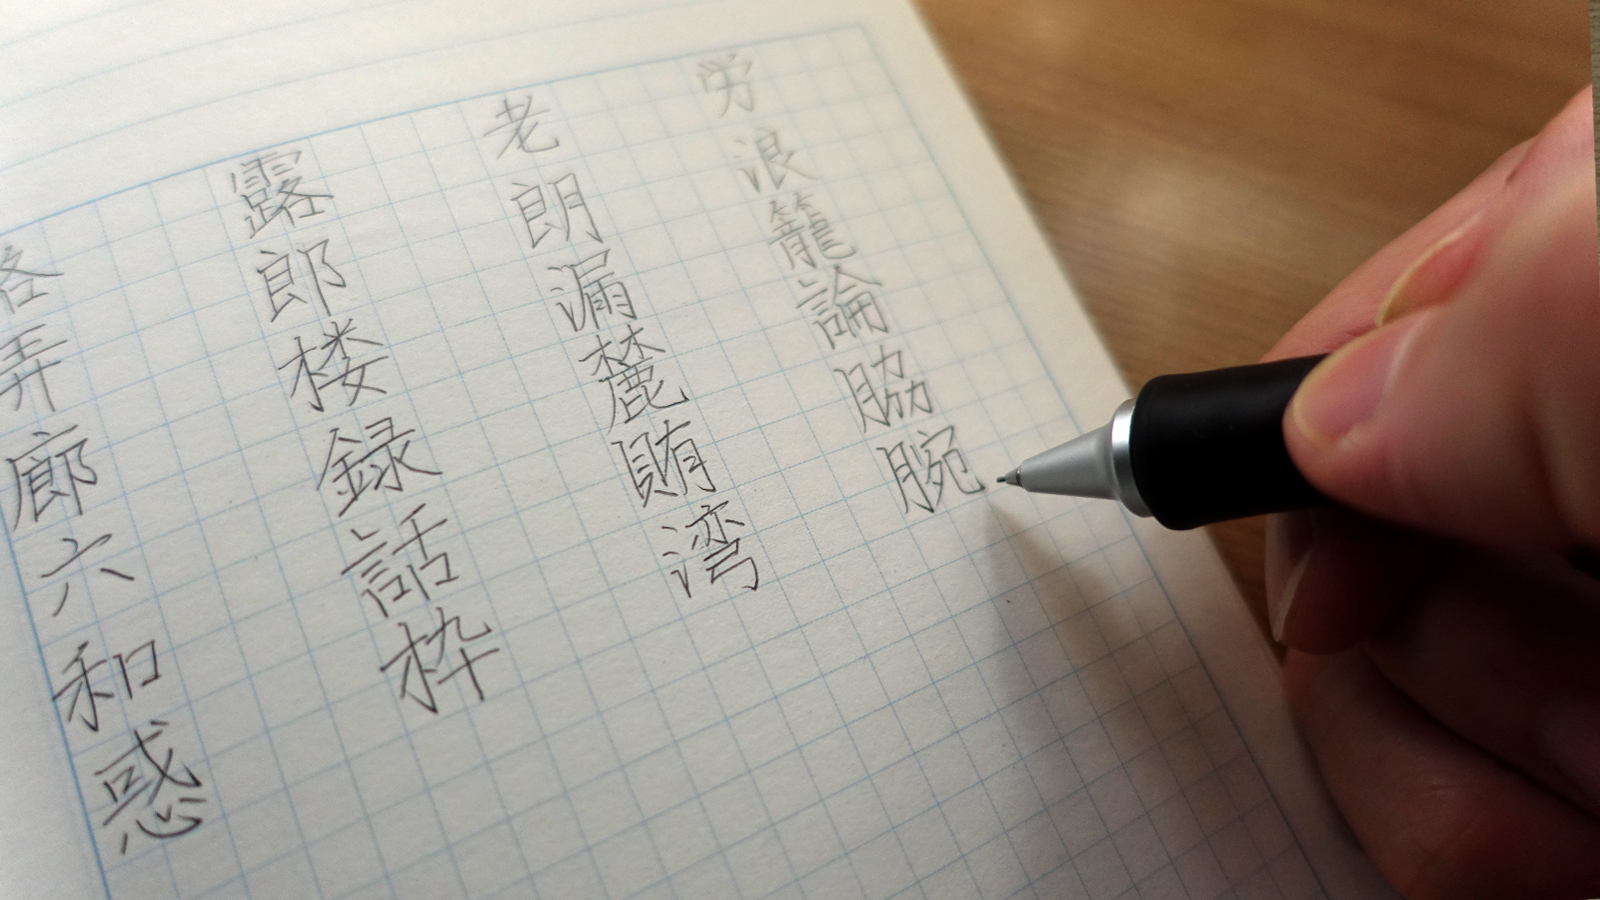 露 老 労
弄 郎 朗 浪
廊 楼 漏 籠
六 録 麓 論
和 話 賄 脇
惑 枠 湾 腕